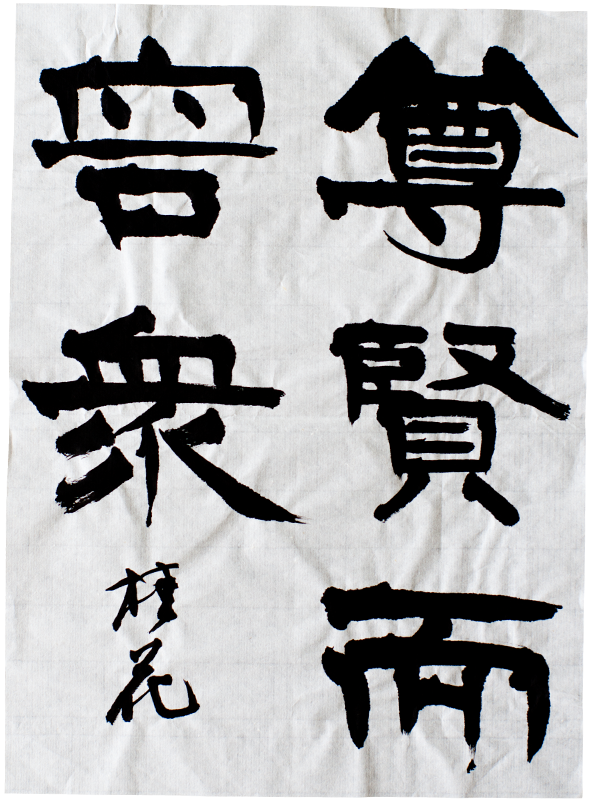 尊賢而
容衆
桂花